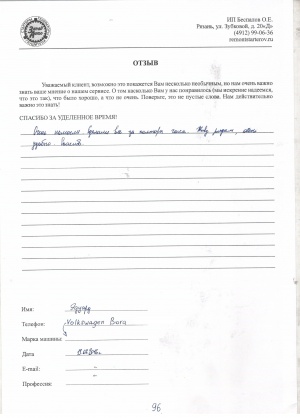 ИП Беспалов О.Е.
Рязань, ул. Зубковой, д. 20«Д»
(4912) 99-06-36
remontstarterov.ru
ОТЗЫВ
Уважаемый клиент, возможно это покажется Вам несколько необычным, но нам очень важно
знать ваше мнение о нашем сервисе. О том насколько Вам у нас понравилось (мы искренне надеемся,
что это так), что было хорошо, а что не очень. Поверьте, это не пустые слова. Нам действительно
важно это знать!
СПАСИБО ЗА УДЕЛЕННОЕ ВРЕМЯ!
все за часа рядом,
удобно
Имя: Эдуард
Телефон: Volkswagen Bora
Марка машины:
Дата
E-mail: –
Профессия: –
96